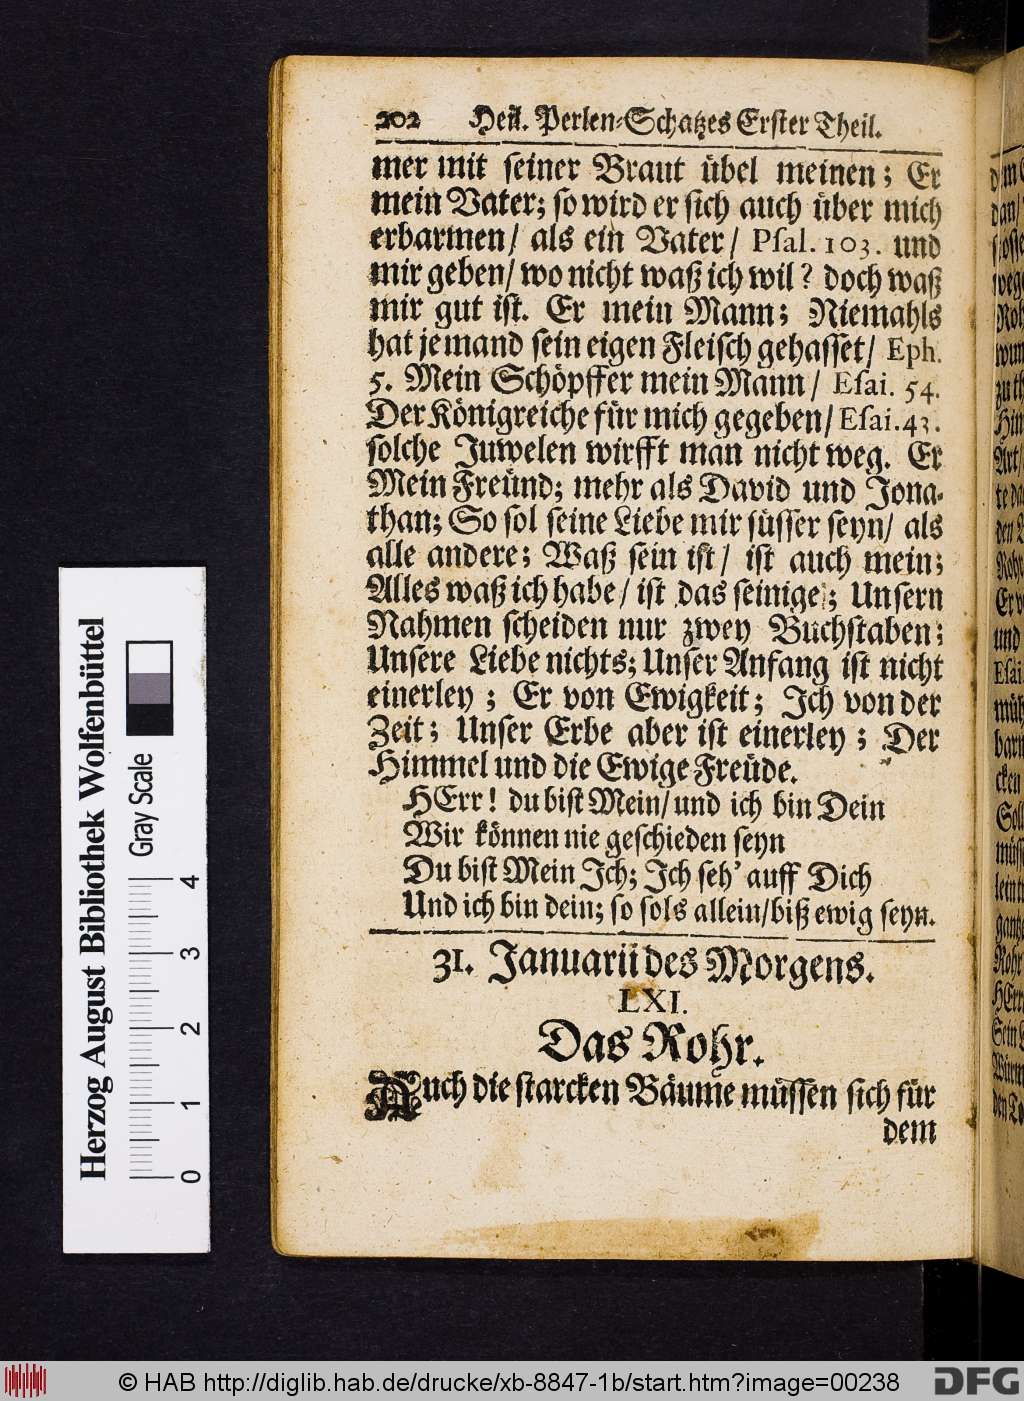 202 Heil. Perlen-Schatzes Erster Theil.
mer mit seiner Braut übel meinen; Er
mein Vater; so wird er sich auch über mich
erbarmen/ als ein Vater/ Psal. 103. und
mir geben/ wo nicht waß ich wil? doch waß
mir gut ist. Er mein Mann; Niemahls
hat jemand sein eigen Fleisch gehasset/ Eph.
5. Mein Schöpffer mein Mann/ Esai. 54.
Der Königreiche für mich gegeben/ Esai. 43.
solche Juwelen wirfft man nicht weg. Er
Mein Freünd; mehr als David und Jona-
than; So sol seine Liebe mir süsser seyn/ als
alle andere; Waß sein ist/ ist auch mein;
Alles waß ich habe/ ist das seinige; Unsern
Nahmen scheiden nur zwey Buchstaben;
Unsere Liebe nichts; Unser Anfang ist nicht
einerley; Er von Ewigkeit; Ich von der
Zeit; Unser Erbe aber ist einerley; Der
Himmel und die Ewige Freüde.
HErr! du bist Mein/ und ich bin Dein
Wir können nie geschieden seyn
Du bist Mein Ich; Ich seh' auff Dich
Und ich bin dein; so sols allein/ biß ewig seyn.
31. Januarii des Morgens.
LXI.
Das Rohr.
Auch die starcken Bäume müssen sich für
dem
Herzog August Bibliothek Wolfenbüttel
Gray Scale
0 1 2 3 4
© HAB http://diglib.hab.de/drucke/xb-8847-1b/start.htm?image=00238
DFG